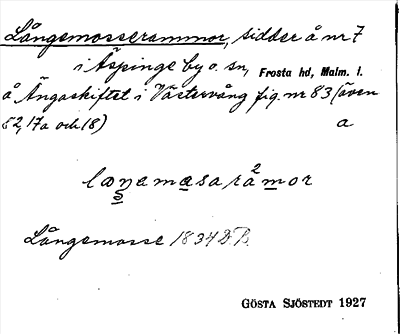 Långemosserammor, sidder å nr 7
i Äspinge by o. sn, Frosta hd, Malm. l.
å Ängaskiftet i Västervång fig. nr 83 (även
52, 17a och 18) a
laŋemasarå²mor
Långemosse 1834 D.B.
GÖSTA SJÖSTEDT 1927